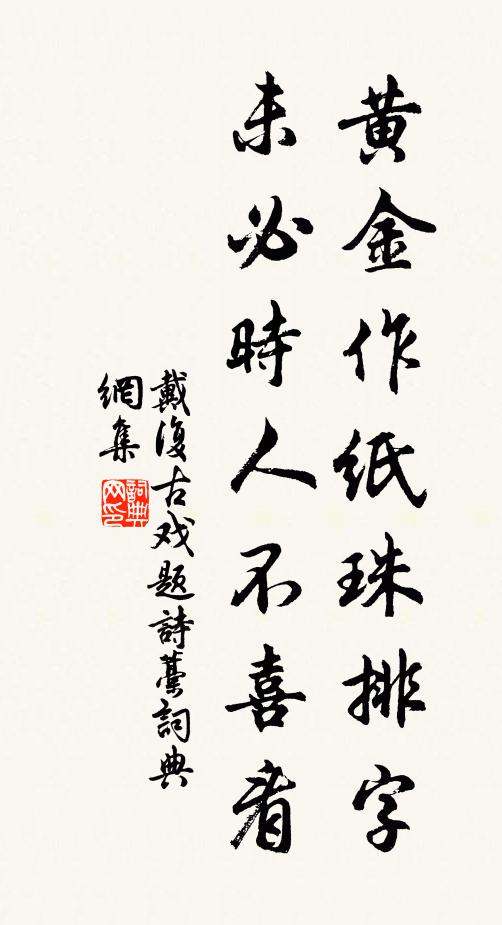 黄金作紙珠排字
未必時人不喜看
戴復古戏題詩藁詞典
網集
詞典網印